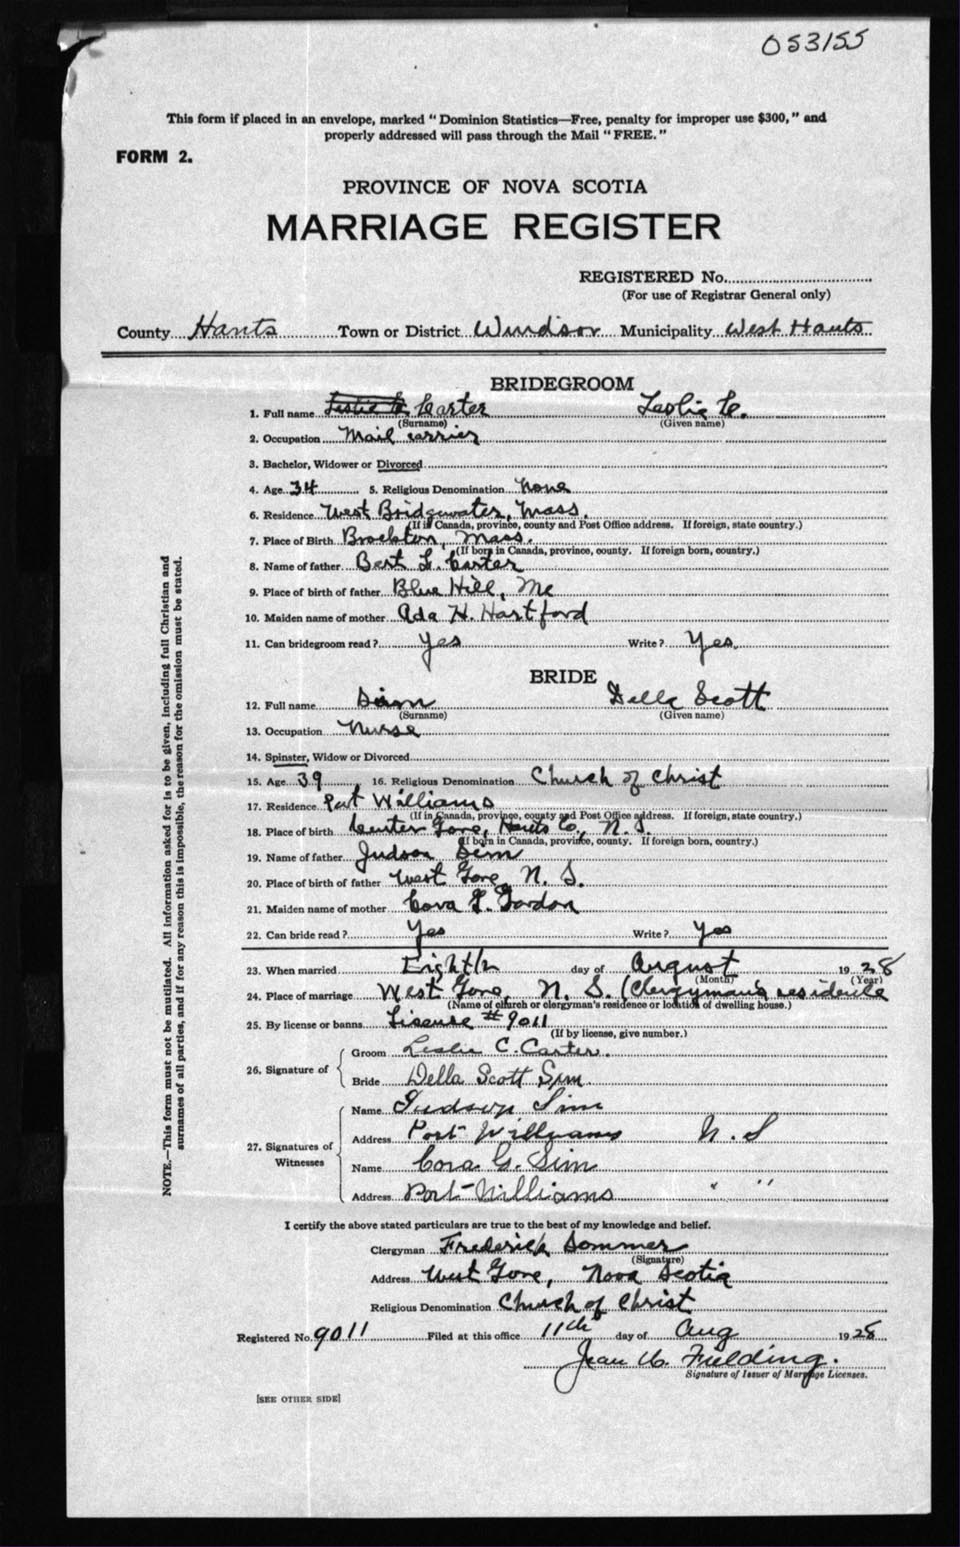 053155
This form if placed in an envelope, marked "Dominion Statistics—Free, penalty for improper use $300," and
properly addressed will pass through the Mail "FREE."
FORM 2.
PROVINCE OF NOVA SCOTIA
MARRIAGE REGISTER
REGISTERED No.
(For use of Registrar General only)
County Hants Town or District Windsor Municipality West Hants
BRIDEGROOM
1. Full name Leslie C. Carter Leslie C.
(Surname) (Given name)
2. Occupation Mail carrier
3. Bachelor, Widower or Divorced
4. Age 34 5. Religious Denomination None
6. Residence West Bridgewater, Mass.
(If in Canada, province, county and Post Office address. If foreign, state country.)
7. Place of Birth Brockton, Mass.
(If born in Canada, province, county. If foreign born, country.)
8. Name of father Bert L. Carter
9. Place of birth of father Blue Hill, Me
10. Maiden name of mother Ada H. Hartford
11. Can bridegroom read? Yes Write? Yes.
BRIDE
12. Full name Sim Della Scott
(Surname) (Given name)
13. Occupation Nurse
14. Spinster, Widow or Divorced
15. Age 39 16. Religious Denomination Church of Christ
17. Residence Port Williams
(If in Canada, province, county and Post Office address. If foreign, state country.)
18. Place of birth Center Gore, Hants Co, N. S.
(If born in Canada, province, county. If foreign born, country.)
19. Name of father Judson Sim
20. Place of birth of father West Gore, N. S.
21. Maiden name of mother Cora G. Gordon
22. Can bride read? Yes Write? Yes
23. When married Eighth day of August 1928
(Month) (Year)
24. Place of marriage West Gore, N. S. (Clergyman's residence
(Name of church or clergyman's residence or location of dwelling house.)
25. By license or banns License #9011
(If by license, give number.)
26. Signature of
Groom Leslie C. Carter.
Bride Della Scott Sim.
27. Signatures of Witnesses
Name Judson Sim
Address Port Williams N. S
Name Cora G. Sim
Address Port Williams " "
I certify the above stated particulars are true to the best of my knowledge and belief.
Clergyman Frederick Sommer
(Signature)
Address West Gore, Nova Scotia
Religious Denomination Church of Christ
Registered No. 9011 Filed at this office 11th day of Aug 1928
Jean Fielding.
Signature of Issuer of Marriage Licenses.
[SEE OTHER SIDE]
NOTE.—This form must not be mutilated. All information asked for is to be given, including full Christian and
surnames of all parties, and if for any reason this is impossible, the reason for the omission must be stated.